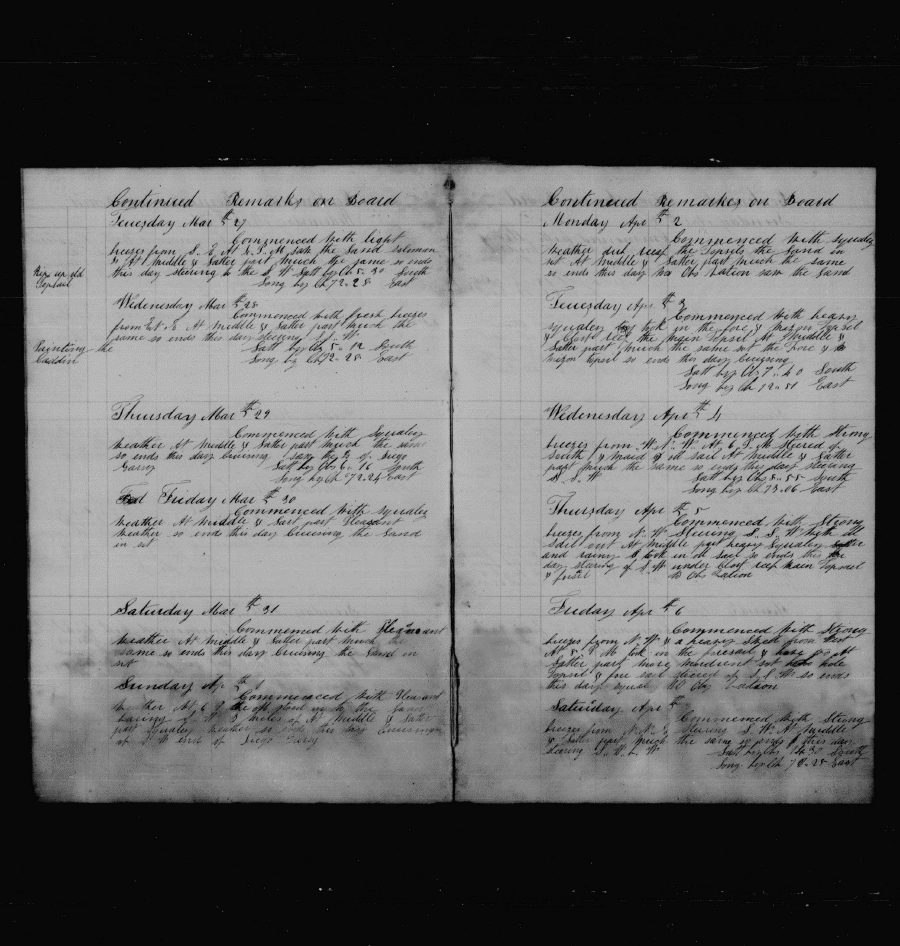 Continued Remarks on Board
Teuesday Mar th 27
Commenced With light
breezes from S. E At 4. P. M saw the Sand
S. E At Middle & Latter part much the same so ends
this day stering to the S. W Latt by Ob 5.. 30 South
Long by Ch 72.. 28 East
Rip up old
Wednesday Mar th 28
Commenced with fresh breezes
from At Middle & Latter part much the
same so ends this day steering S.. W
Latt by Ob 5.. 12 South
Long by Ch 72.. 28 East
Painting the
Thursday Mar th 29
Commenced With Squaley
Weather At Middle & Latter part much the same
so ends this day Cruising saw the of Diego
Garcy Latt by Obs 6.. 16 South
Long by Ch 72.. 24 East
Friday Mar th 30
Commenced With Squaley
Weather At Middle & Lart part Pleasant
Weather so ends this day Cruesing the Sand
in sit
Saturday Mar th 31
Commenced With Pleasant
Weather At Middle & Latter part much the
same so ends this day Cruising the Sand in
sit
Sunday Ap 1
Commenced With Pleasant
Weather At 6 stood in to the
baring S. W 8 miles of At Middle & Later
part Squaley Weather so ends this day Cruesing
of S W end of Diego Garcy
Continued Remarkes on Board
Monday Apr th 2
Commenced With Squaley
Weather reef the Topsils the Sand in
sit At Middle & Latter part much the same
so ends this day No Obs Lation saw the Sand
Teuesday Apr th 3
Commenced With heavy
Squaley took in the fore & Topsel
& Clost reef the Main Topsil At Middle &
Latter part much the same set the Fore &
Topsil so ends this day Cruising
Latt by Ob 7.. 40 South
Long by Ch 72.. 51 East
Wednesday Apr th 4
Commenced With Strong
breezes from W. N. W At 6 P M Steered of
South & Maid all sail At Middle & Latter
part much the same so ends this day stering
S. S. W Latt by Ob 8.. 55 South
Long by Ch 73.. 06 East
Thursday Apr th 5
Commenced With Strong
breezes from N. W Steering S. S. W With all
sail out At Middle part heavy Squaley
and rainy & took in all sail so ends the
day steering of S W under Clost reef Main Topsail
& foresil No Obs Lation
Friday Apr th 6
Commenced With Strong
breezes from N. W & a heavy
At 5. P. M took in the foresail & At
Latter part more set hole
Topsil & fore sail S. S. W so ends
this day Squaley No Ob Lation
Saturday Apr th
Commenced With Strong
breezes from N. N. Steering S. W. At Middle
& Later part much the same so ends this day
Steering S. W. b. W Latt by Ob South
Long by Ch 72.. 28 East